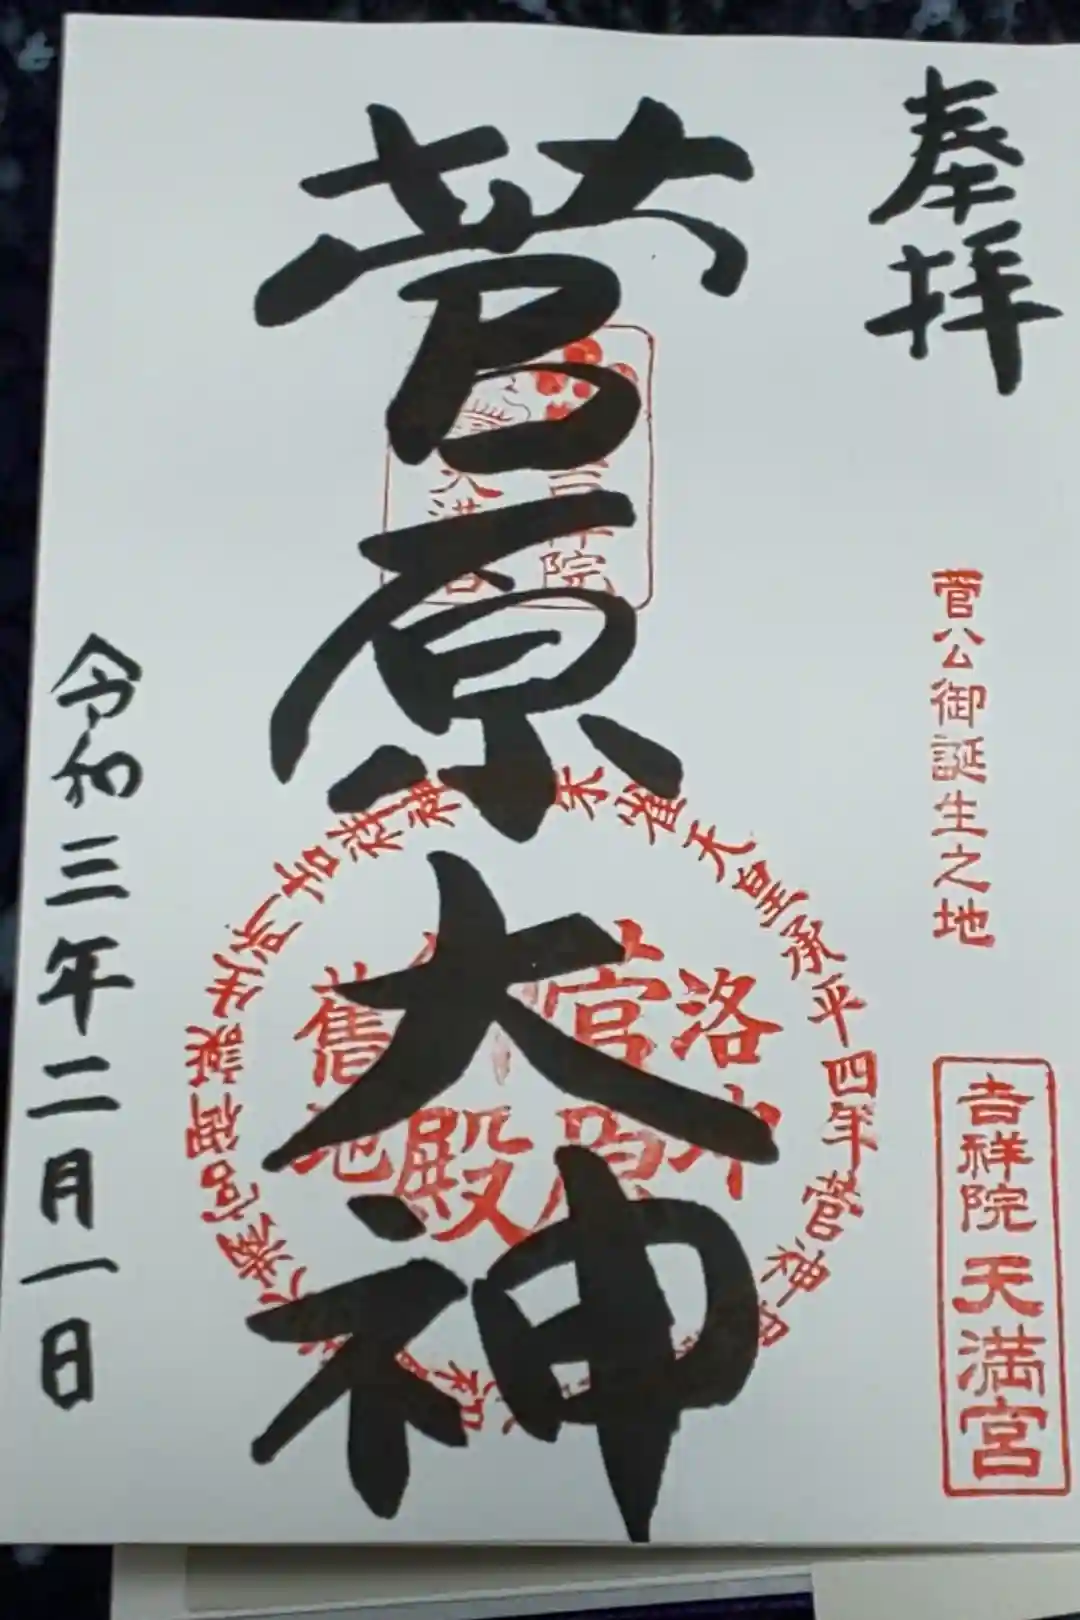 奉拝
菅公御誕生之地
吉祥院天満宮
菅原大神
朱雀天皇承平四年菅神
天満宮御誕生所吉祥
洛中
菅原
殿
舊地
院
令和三年二月一日